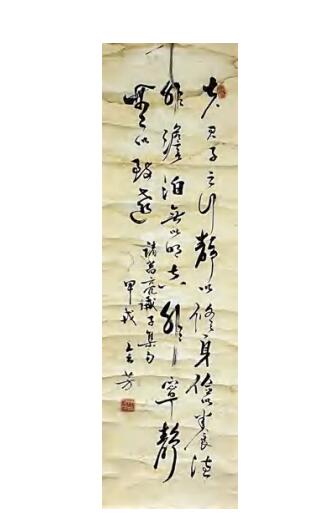 夫君子之行靜以修身儉以養德
非澹泊無以明志非寧靜
無以致遠
諸葛亮誡子集句
甲戌 芳